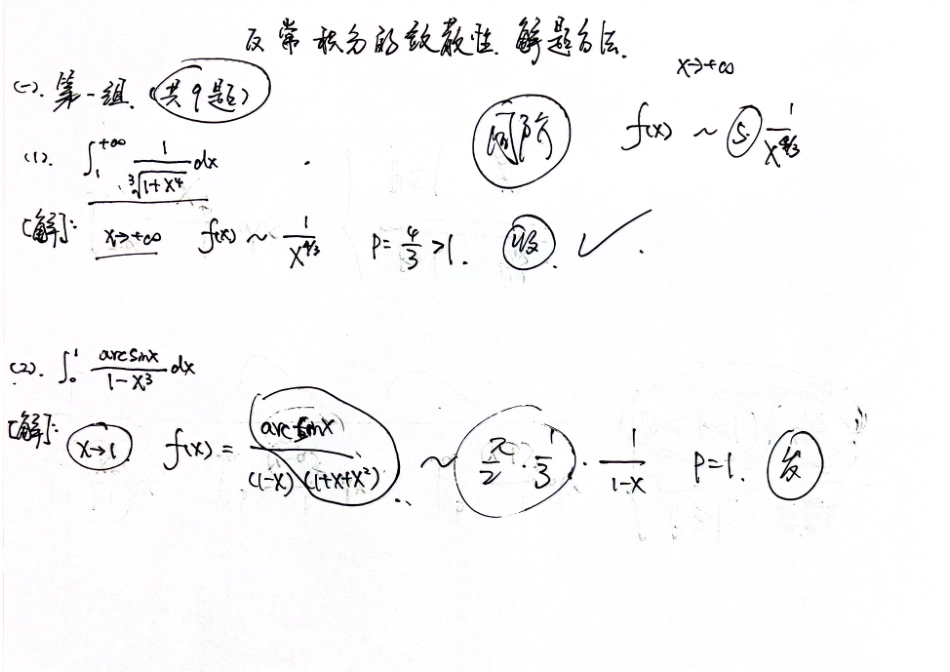 反常积分的敛散性.解题方法.
(一).第一组.(共9题)
x→+∞
同阶 f(x) ~ 5·1/x^{4/3}
(1). ∫_1^{+∞} 1/∛(1+x⁴) dx
[解]: x→+∞ f(x) ~ 1/x^{4/3} P=4/3>1. 收. ✓.
(2). ∫_0^1 arcsinx/(1-x³) dx
[解]: x→1 f(x) = arcsinx/((1-x)(1+x+x²)) ~ π/2·1/3·1/(1-x) P=1. 发